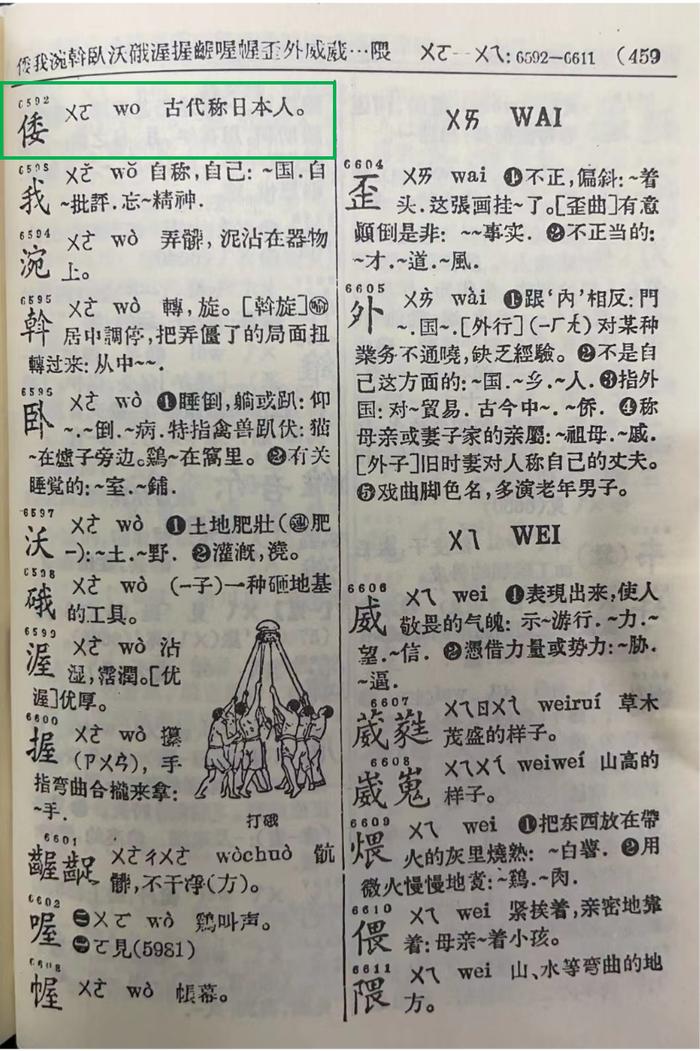 倭我涴斡臥沃硪渥握齷喔幄歪外威葳…隈 ㄨㄛ—ㄨㄟ: 6592—6611 (459
6592
倭 ㄨㄛ wo 古代称日本人。
我 ㄨㄛˇ wǒ 自称,自己: ~国.自
~批評.忘~精神.
6594
涴 ㄨㄛˋ wò 弄髒, 泥沾在器物
上。
6595
斡 ㄨㄛˋ wò 轉,旋。[斡旋]㊗
居中調停,把弄僵了的局面扭
轉过来: 从中~~.
6596
臥 ㄨㄛˋ wò ❶睡倒,躺或趴: 仰
~.~倒.~病.特指禽兽趴伏: 猫
~在爐子旁边。鷄~在窩里。❷有关
睡覚的:~室.~鋪.
6597
沃 ㄨㄛˋ wò ❶土地肥壯(㊣肥
—):~土.~野. ❷灌漑,澆。
6598
硪 ㄨㄛˋ wò (—子)一种砸地基
的工具。
6599
渥 ㄨㄛˋ wò 沾
湿,霑潤。[优
渥]优厚。
6600
握 ㄨㄛˋ wò 攥
(ㄗㄨㄢˋ), 手
指弯曲合攏来拿:
~手.
打硪
6601
齷齪 ㄨㄛˋㄔㄨㄛˋ wòchuò 骯
髒,不干凈(方)。
6602
喔 ㊀ㄨㄛ wò 鷄叫声。
㊁ㄛ見(5981)
幄 ㄨㄛˋ wò 帳幕。
ㄨㄞ WAI
6604
歪 ㄨㄞ wai ❶不正,偏斜:~着
头.这張画挂~了。[歪曲]有意
顛倒是非: ~~事实. ❷不正当的:
~才.~道.~風.
6605
外 ㄨㄞˋ wài ❶跟‘内’相反: 門
~.国~.[外行](—ㄏㄤˊ) 对某种
業务不通曉,缺乏經驗。❷不是自
己这方面的:~国.~乡.~人. ❸指外
国: 对~貿易. 古今中~.~侨. ❹称
母亲或妻子家的亲屬:~祖母.~戚.
[外子]旧时妻对人称自己的丈夫。
❺戏曲脚色名,多演老年男子。
ㄨㄟ WEI
6606
威 ㄨㄟ wei ❶表現出来,使人
敬畏的气魄: 示~游行.~力.~
望.~信. ❷憑借力量或势力:~胁.
~逼.
6607
葳蕤 ㄨㄟㄖㄨㄟˊ weiruí 草木
茂盛的样子。
6608
崴嵬 ㄨㄟㄨㄟˊ weiweí 山高的
样子。
6609
煨 ㄨㄟ wei ❶把东西放在帶
火的灰里燒熟: ~白薯. ❷用
微火慢慢地煑:~鷄.~肉.
6610
偎 ㄨㄟ wei 紧挨着,亲密地靠
着:母亲~着小孩。
6611
隈 ㄨㄟ wei 山、水等弯曲的地
方。